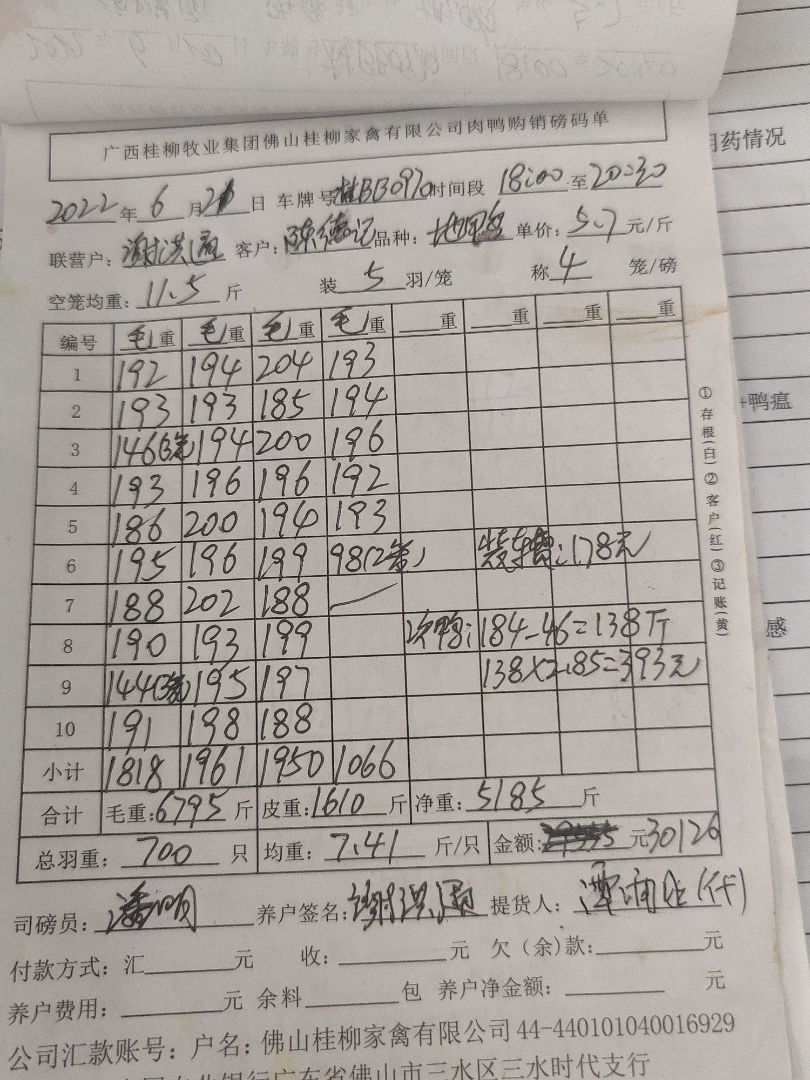 用药情况
广西桂柳牧业集团佛山桂柳家禽有限公司肉鸭购销磅码单
2022年6月21日 车牌号桂BB0970时间段18:00至20:30
联营户:谢洪通 客户:陈德记品种: 单价:5.7元/斤
空笼均重:11.5斤 装5羽/笼 称4笼/磅
编号 毛重 毛重 毛重 毛重 重 重 重 重
1 192 194 204 193
2 193 193 185 194
+鸭瘟
3 146(3笼) 194 200 196
4 193 196 196 192
5 186 200 194 193
6 195 196 199 98(2笼) 装车费:178元
7 188 202 188 —
8 190 193 199 次鸭:184-46=138斤
感
9 144(3笼) 195 197 138×2.85=393元
10 191 198 188
小计 1818 1961 1950 1066
合计 毛重:6795斤 皮重:1610斤 净重:5185斤
总羽重:700只 均重:7.41斤/只 金额:元30126
①存根(白)②客户(红)③记账(黄)
司磅员: 养户签名:谢洪通 提货人:(代)
付款方式:汇元 收:元 欠(余)款:元
养户费用:元 余料包 养户净金额:元
公司汇款账号:户名:佛山桂柳家禽有限公司44-440101040016929
银行广东省佛山市三水区三水时代支行